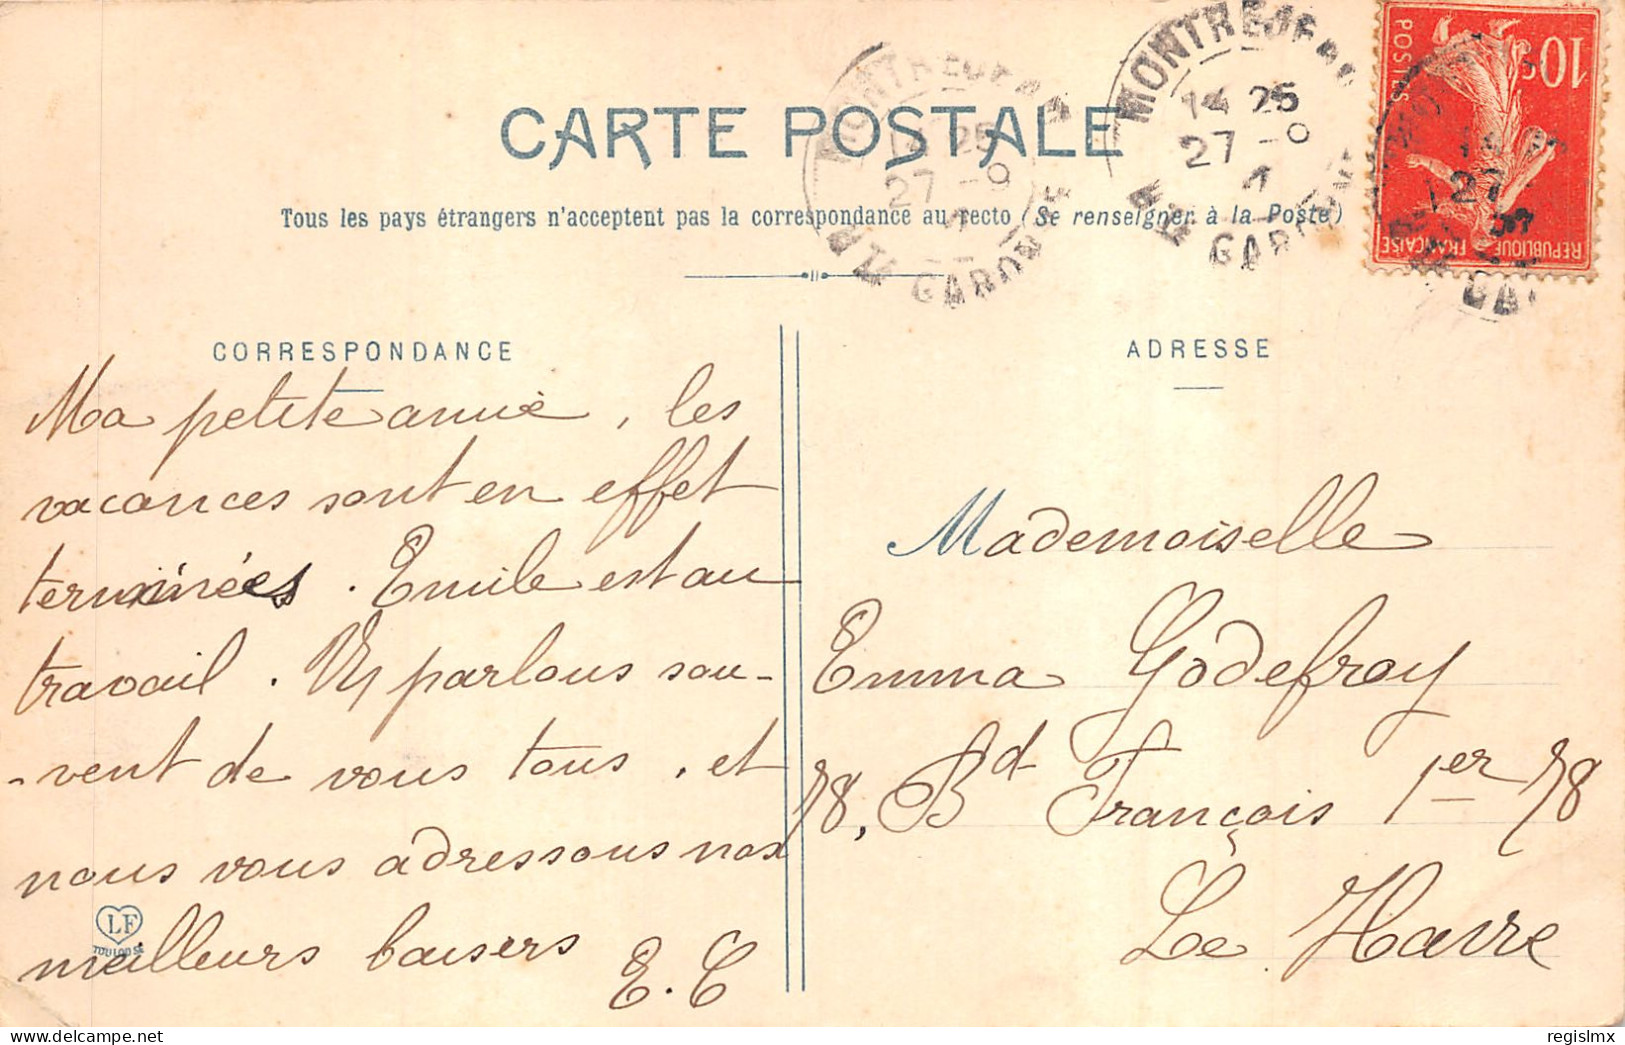 CARTE POSTALE
Tous les pays étrangers n'acceptent pas la correspondance au recto (Se renseigner à la Poste)
MONTREJEAU
14 25
27 - 9
Hte GARONNE
MONTREJEAU
14 25
27 - 9
Hte GARONNE
10c
POSTES
REPUBLIQUE FRANÇAISE
27
CORRESPONDANCE
Ma petite amie, les
vacances sont en effet
terminées. Emile est au
travail. Ns parlons sou-
-vent de vous tous, et
nous vous adressons nos
meilleurs baisers
E. C
LF
TOULOUSE
ADRESSE
Mademoiselle
Emma Godefroy
78, Bd François 1er 78
Le Havre
regislmx